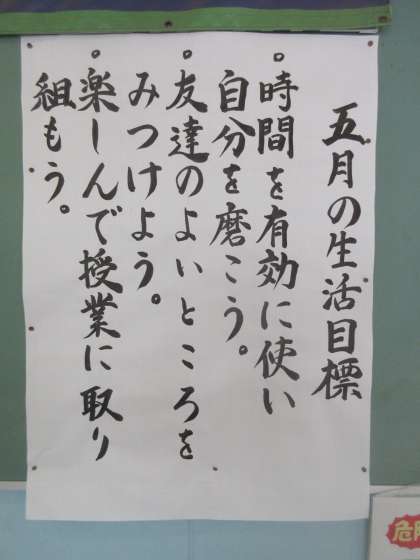 五月の生活目標
。時間を有効に使い
自分を磨こう。
。友達のよいところを
みつけよう。
。楽しんで授業に取り
組もう。
危